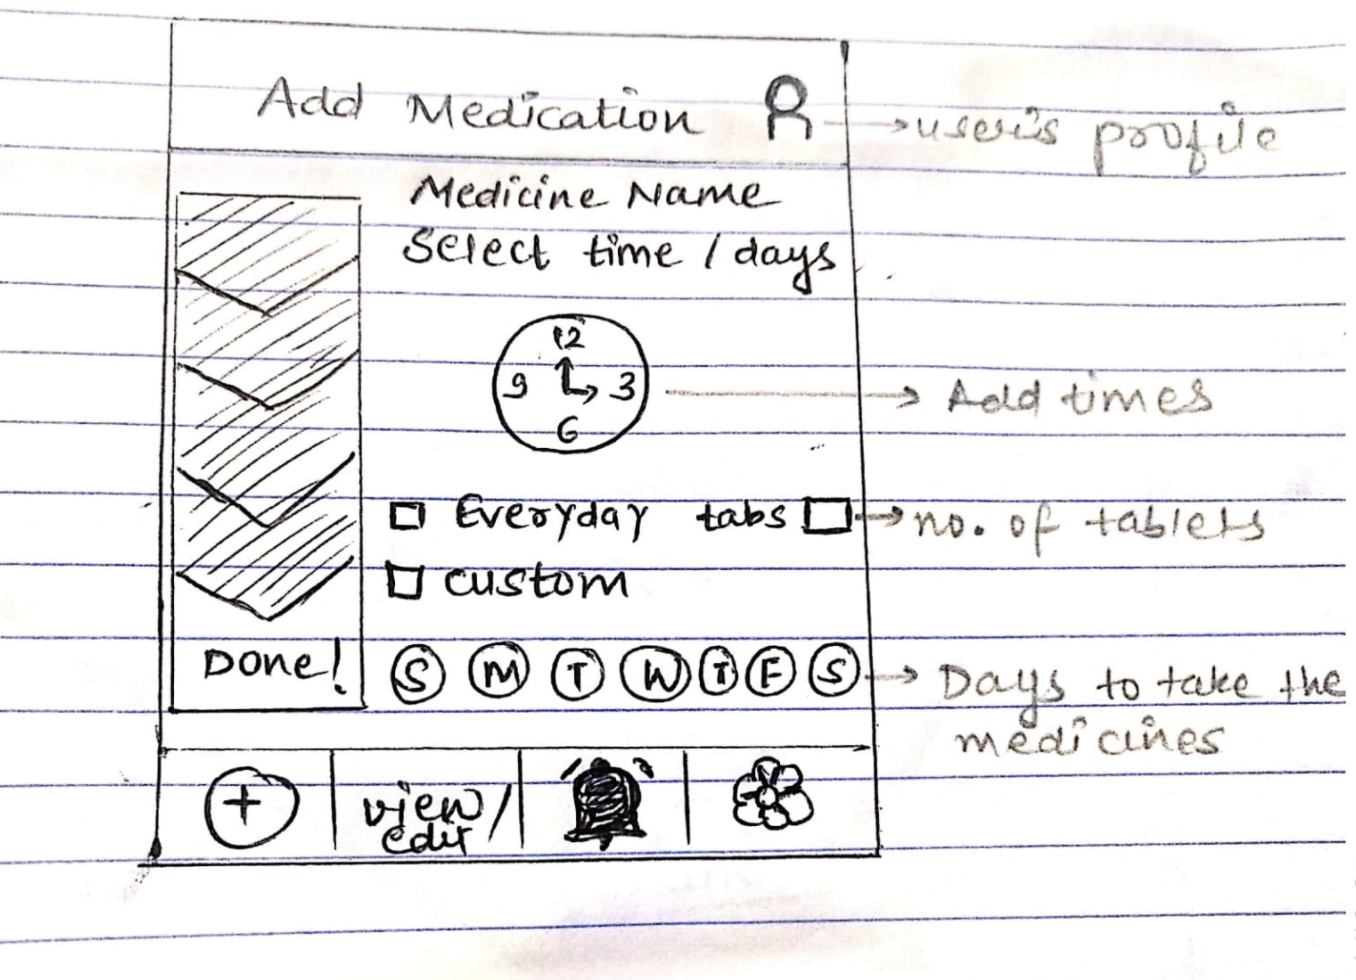 Add Medication
user's profile
Medicine Name
Select time / days
12
9 3
6
Add times
Everyday tabs
no. of tablets
custom
Done!
S M T W T F S
Days to take the
medicines
+
view/
edit